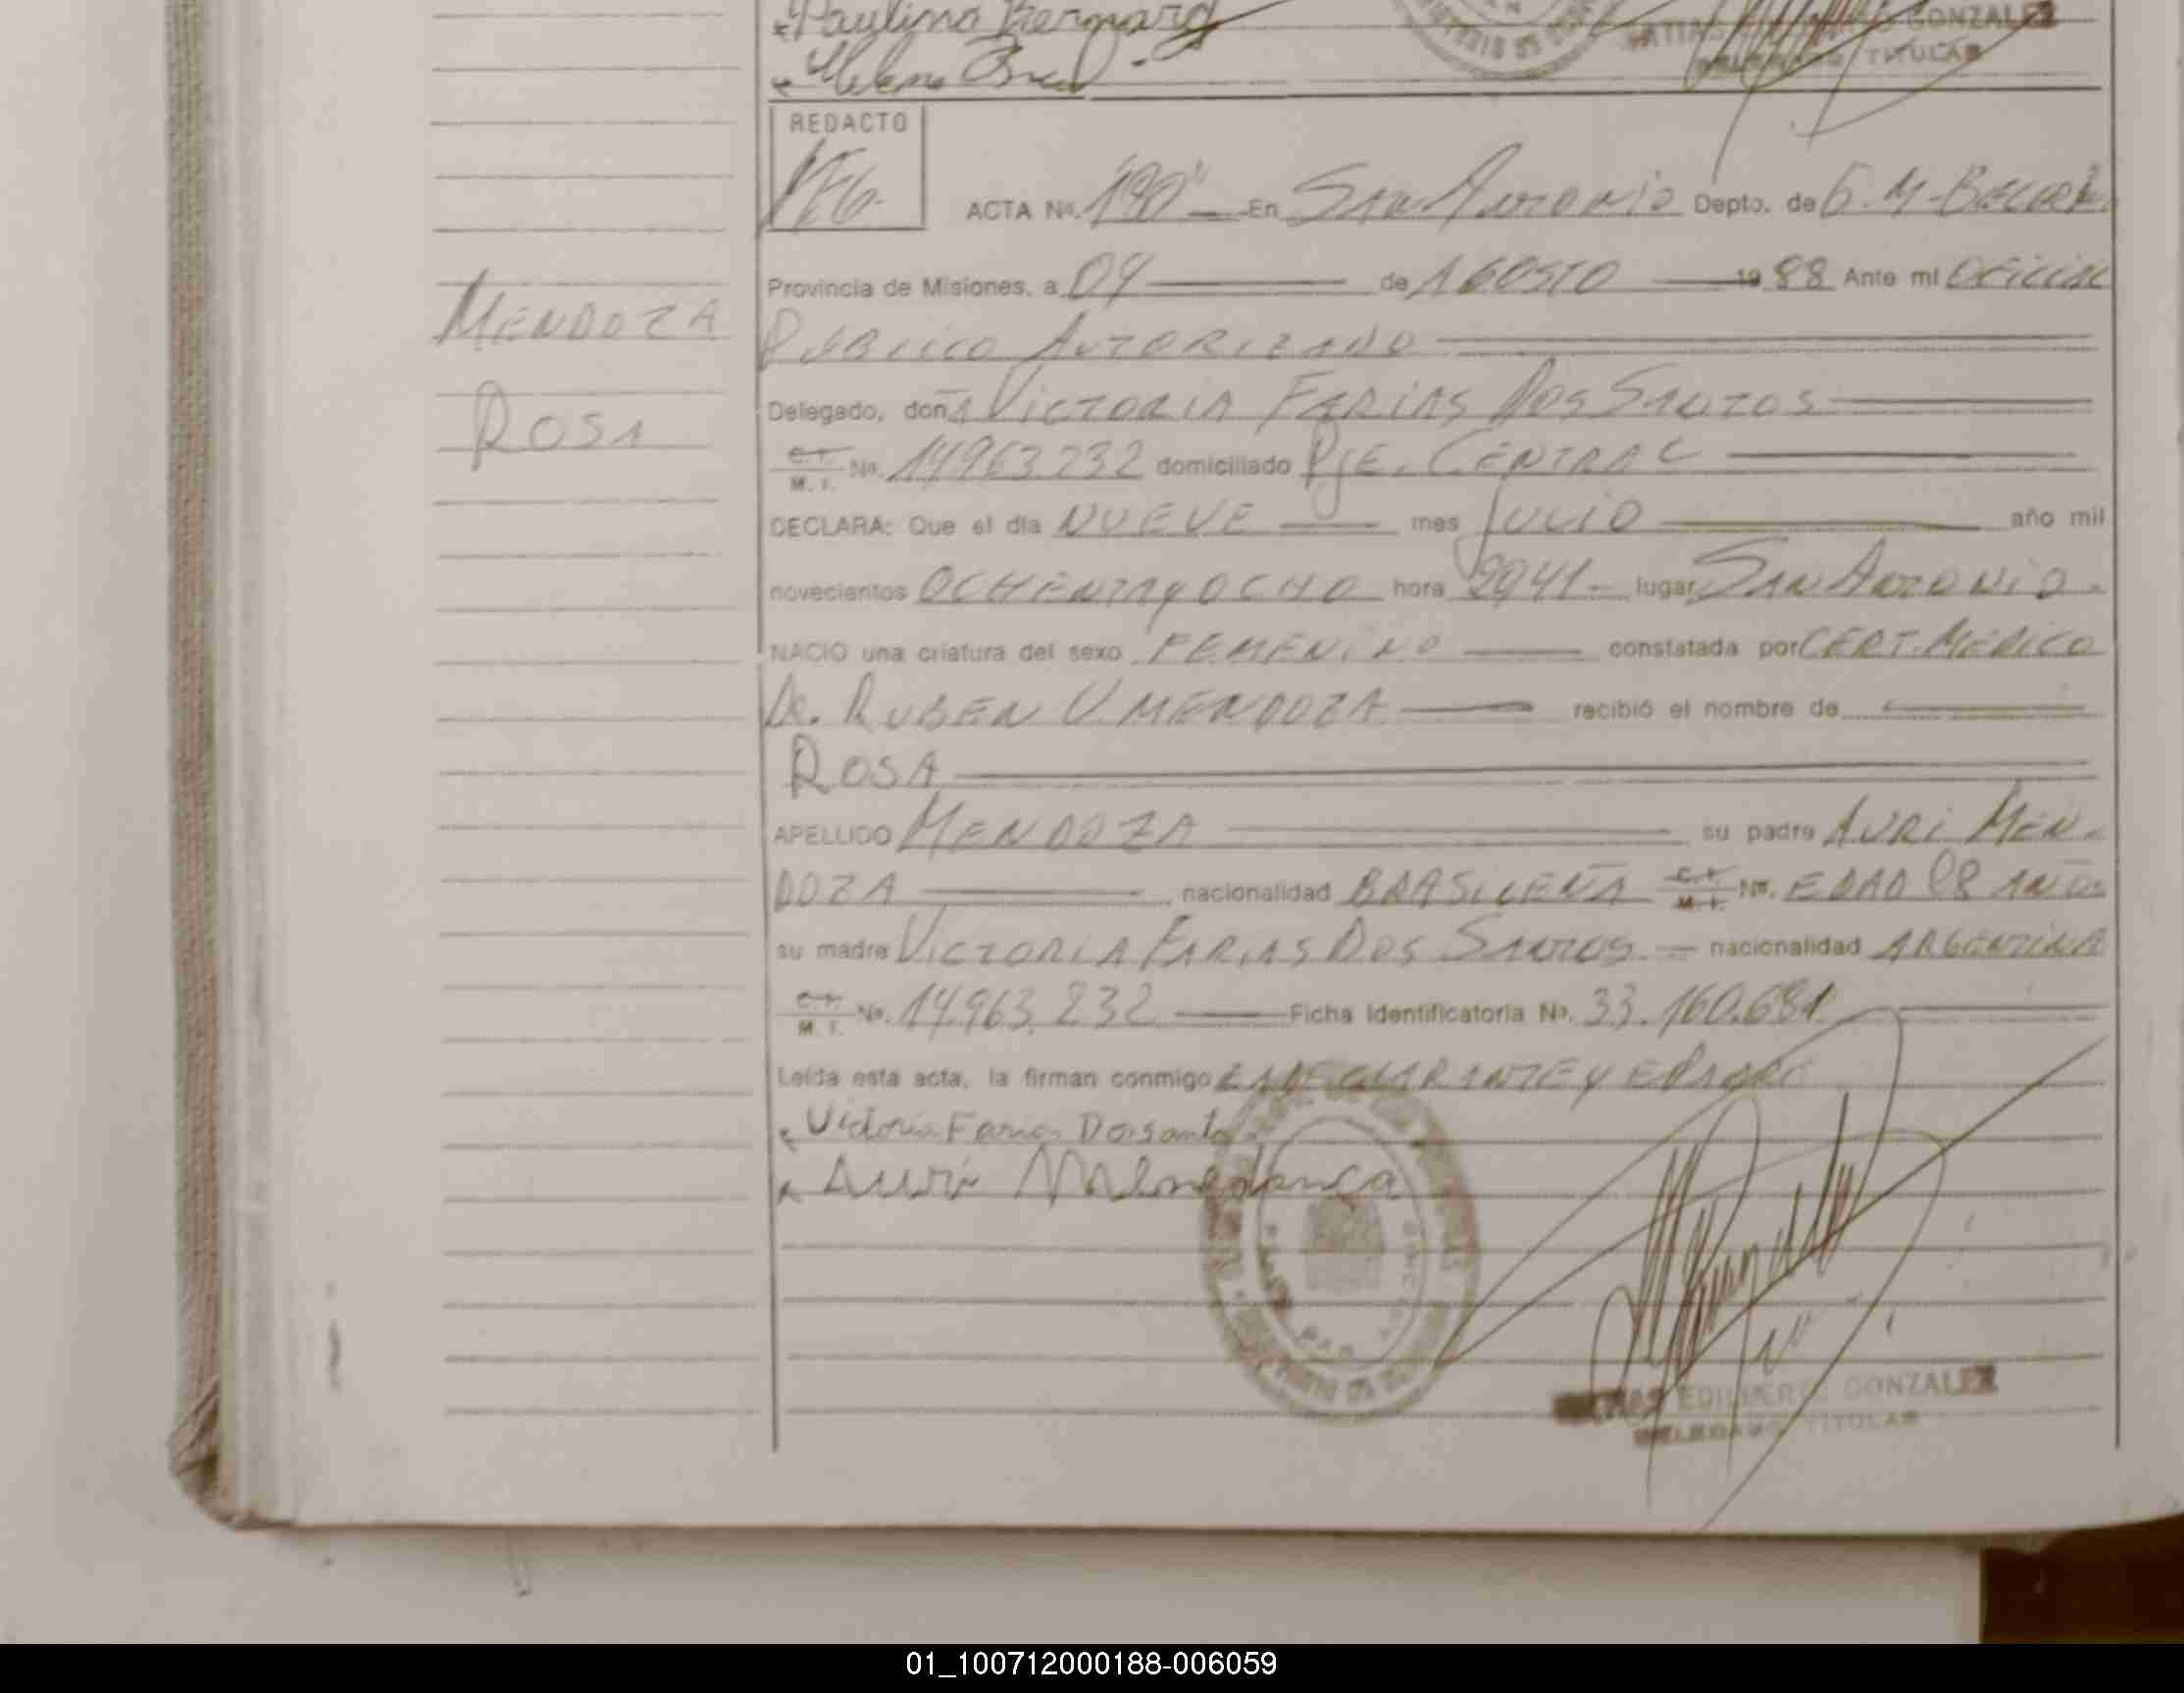 Paulino Bernard
GONZALEZ
TITULAR
REDACTO
ACTA Nº. "190" En San Antonio Depto. de G. M. Belgr.
Provincia de Misiones, a 09 de AGOSTO 1988 Ante mi OFICIAL
MENDOZA
PUBLICO AUTORIZADO
Delegado, doña VICTORIA FARIAS DOS SANTOS
ROSA
C.I.
M. I. Nº. 14.963.232 domiciliado PJE. CENTRAL
DECLARA: Que el día NUEVE mes JULIO año mil
novecientos OCHENTA y OCHO hora lugar SAN ANTONIO
NACIO una criatura del sexo FEMENINO constatada por CERT. MEDICO
Dr. RUBEN V. MENDOZA recibió el nombre de
ROSA
APELLIDO MENDOZA su padre AURI MEN-
DOZA nacionalidad BRASILEÑA C.I. M. I. Nº. EDAD AÑOS
su madre VICTORIA FARIAS DOS SANTOS nacionalidad ARGENTINA
C.I.
M. I. Nº. 14.963.232 Ficha Identificatoria Nº. 33.160.681
Leída esta acta, la firman conmigo y
Victoria Farias Dosanto
Auri
EDILBERTO GONZALEZ
DELEGADO TITULAR
01_100712000188-006059